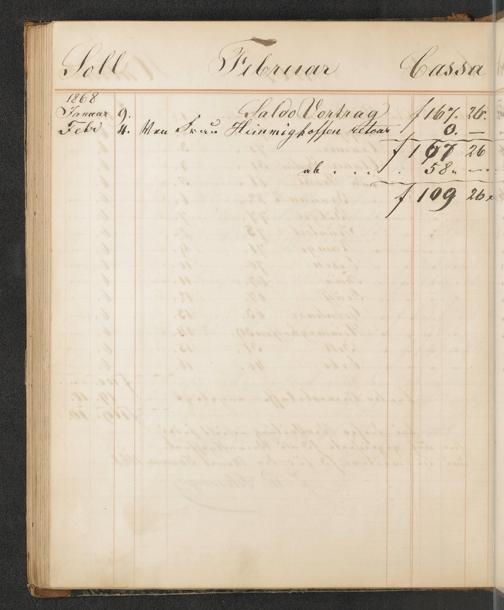 Soll Februar Cassa
1868
Januar 9. Saldo Vortrag f 167. 26.
Febr 4. Von Frau Heinmighoffen retour 0. —
f 167 26
ab . . . . 58. —
f 109 26.